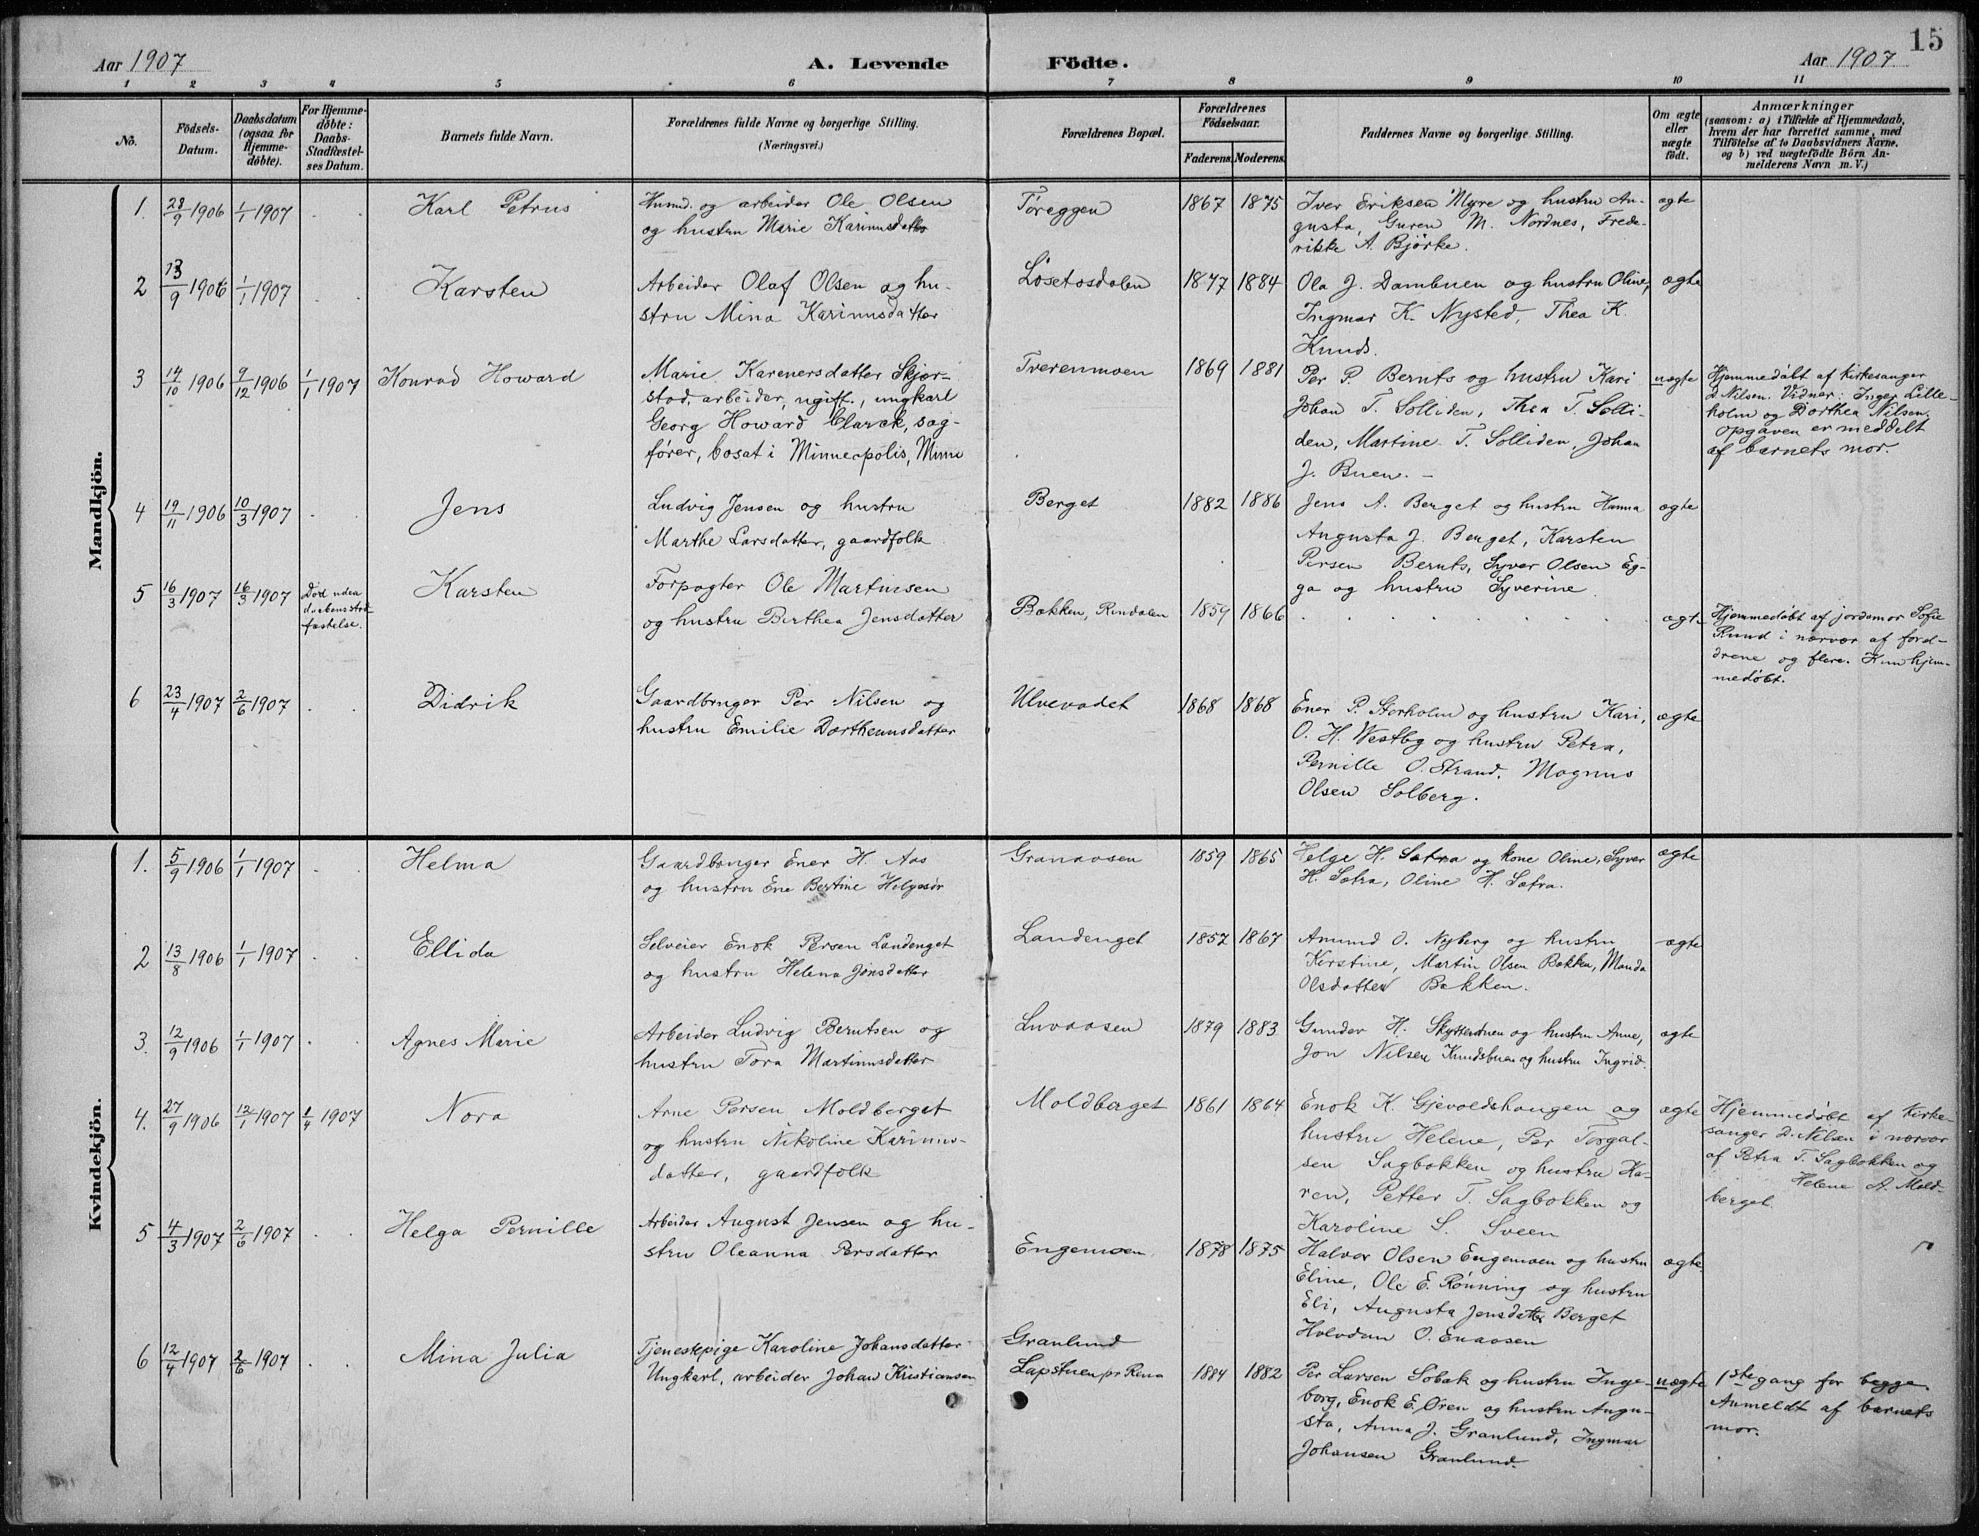 15
Aar 1907
A. Levende Födte.
Aar 1907
1 2 3 4 5 6 7 8 9 10 11
No.
Födsels-
Datum.
Daabsdatum
(ogsaa for
Hjemme-
döbte).
For Hjemme-
döbte:
Daabs-
Stadfæstel-
ses Datum.
Barnets fulde Navn.
Forældrenes fulde Navne og borgerlige Stilling.
(Næringsvei.)
Forældrenes Bopæl.
Forældrenes
Födselsaar.
Faderens. Moderens.
Faddernes Navne og borgerlige Stilling.
Om ægte
eller
uægte
födt.
Anmærkninger
(saasom: a) i Tilfælde af Hjemmedaab,
hvem der har forrettet samme, med
Tilföielse af to Daabsvidners Navne.
og b) ved uægtefödte Börn An-
melderens Navn m. V.)
Mandkjön.
1. 28/9 1906 1/1 1907 . . Karl Petrus
Husmd. og arbeider Ole Olsen
og hustru Marie Karinusdatter
Töreggen 1867 1875
Iver Eriksen Myre og hustru Au-
gusta, Guren M. Nordnes, Frede-
rikke A. Björke.
ægte
2 13/9 1906 1/1 1907 . . Karsten
Arbeider Olaf Olsen og hu-
stru Mina Karinusdatter
Lösetosdalen 1877 1884
Ola J. Dambuen og hustru Oline,
Ingmar K. Nysted, Thea K.
Knuds.
ægte
3 14/10 1906 9/12 1906 1/1 1907 Konrad Howard
Marie Karenersdatter Skjær-
stad, arbeider, ugift., ungkarl
Georg Howard Clarck, sag-
förer, bosat i Minneapolis, Minn
Tverenmoen 1869 1881
Per P. Bernts og hustru Kari
Johan T. Solliden, Thea T. Solli-
den, Martine T. Solliden, Johan
J. Buen. –
uægte
Hjemmedöbt af kirkesanger
D. Nilsen. Vidner: Inger Lille-
holm og Dorthea Nilsen.
Opgaven er meddelt
af barnets mor.
4 19/11 1906 10/3 1907 . . Jens
Ludvig Jensen og hustru
Marthe Larsdatter, gaardfolk
Berget 1882 1886
Jens A. Berget og hustru Hanna
Augusta J. Berget, Karsten
Persen Bernts, Syver Olsen Eg-
ga og hustru Syverine.
ægte
5 16/3 1907 16/3 1907 Död uden
daabens stad-
fæstelse.
Karsten
Forpagter Ole Martinsen
og hustru Berthea Jensdatter
Bakken, Rindalen 1859 1866
. . . . . . .
ægte
Hjemmedöbt af jordemor Sofie
Rund i nærvær af foræl-
drene og flere. Kun hjem-
medöbt.
6 23/4 1907 2/6 1907 . . Didrik
Gaardbruger Per Nilsen og
hustru Emilie Dortheunsdatter
Ulvevadet 1868 1868
Ener P. Storholm og hustru Kari,
O. H. Westby og hustru Petra,
Pernille O. Strand, Magnus
Olsen Solberg.
ægte
Kvindekjön.
1. 5/9 1906 1/1 1907 . . Helma
Gaardbruger Ener H. Aas
og hustru Ene Bertine Helgesdr
Granaasen 1859 1865
Helge H. Sætra og kone Oline, Syver
H. Sætra, Oline H. Sætra.
ægte
2 13/8 1906 1/1 1907 . . Ellida
Selveier Enok Persen Landenget
og hustru Helena Jonsdatter
Landenget 1857 1867
Amund O. Nyberg og hustru
Kerstine, Martin Olsen Bakken, Manda
Olsdatter Bakken.
ægte
3. 12/9 1906 1/1 1907 . . Agnes Marie
Arbeider Ludvig Berntsen og
hustru Tora Martinusdatter
Luvaasen 1879 1883
Gunder H. Skytterbuen og hustru Anne,
Jon Nilsen Knudsbuen og hustru Ingrid.
ægte
4. 27/9 1906 12/1 1907 1/4 1907 Nora
Arne Persen Moldberget
og hustru Nikoline Karinus-
datter, gaardfolk
Moldberget 1861 1864
Enok K. Gjevoldshaugen og
hustru Helene, Per Torgal-
sen Sagbakken og hustru Ka-
ren, Petter T. Sagbakken og
Karoline S. Sveen
ægte
Hjemmedöbt af kirke-
sanger D. Nilsen i nærvær
af Petra T. Sagbakken og
Helene A. Mold-
berget.
5 4/3 1907 2/6 1907 . . Helga Pernille
Arbeider August Jensen og hu-
stru Oleanna Persdatter
Engemoen 1878 1875
Halvor Olsen Engemoen og hustru
Eline, Ole E. Rönning og hustru
Eli, Augusta Jensdatter Berget
Halvdan O. Enaasen
ægte.
6 12/4 1907 2/6 1907 . . Mina Julia
Tjenestepige Karoline Johansdatter
Ungkarl, arbeider Johan Kristiansen
Granlund
Lapstuen pr Rena 1884 1882
Per Larsen Sobak og hustru Inge-
borg, Enok E. Ören og hustru Augu-
sta, Anna J. Granlund, Ingmar
Johansen Granlund.
uægte
1ste gang for begge
Anmeldt af barnets
mor.